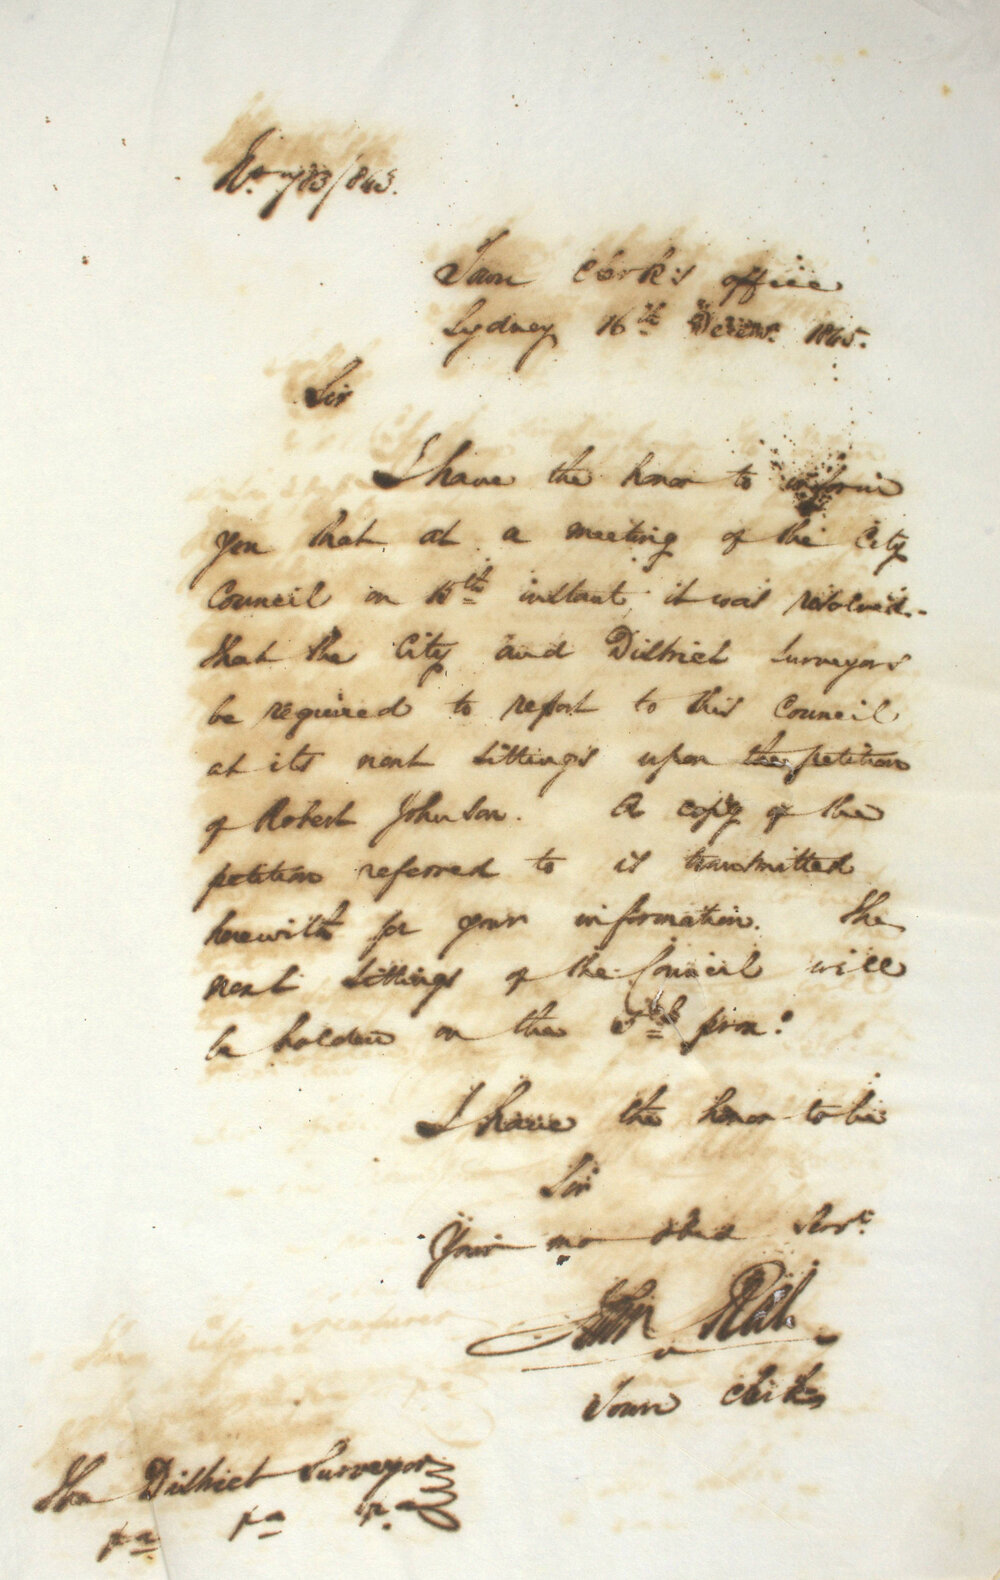 No. 783/1845.
Town Clerk's office
Sydney 16th Decemr. 1845.
Sir
I have the honor to inform
you that at a meeting of the City
Council on 15th instant it was resolved
that the City and District Surveyors
be required to report to this Council
at its next Sittings upon the petition
of Robert Johnson. A copy of the
petition referred to is transmitted
herewith for your information. The
next Sittings of the Council will
be holden on the 5th prox.o
I have the honor to be
Sir
Your mo obed Servt.
John
Town Clerk
The District Surveyor